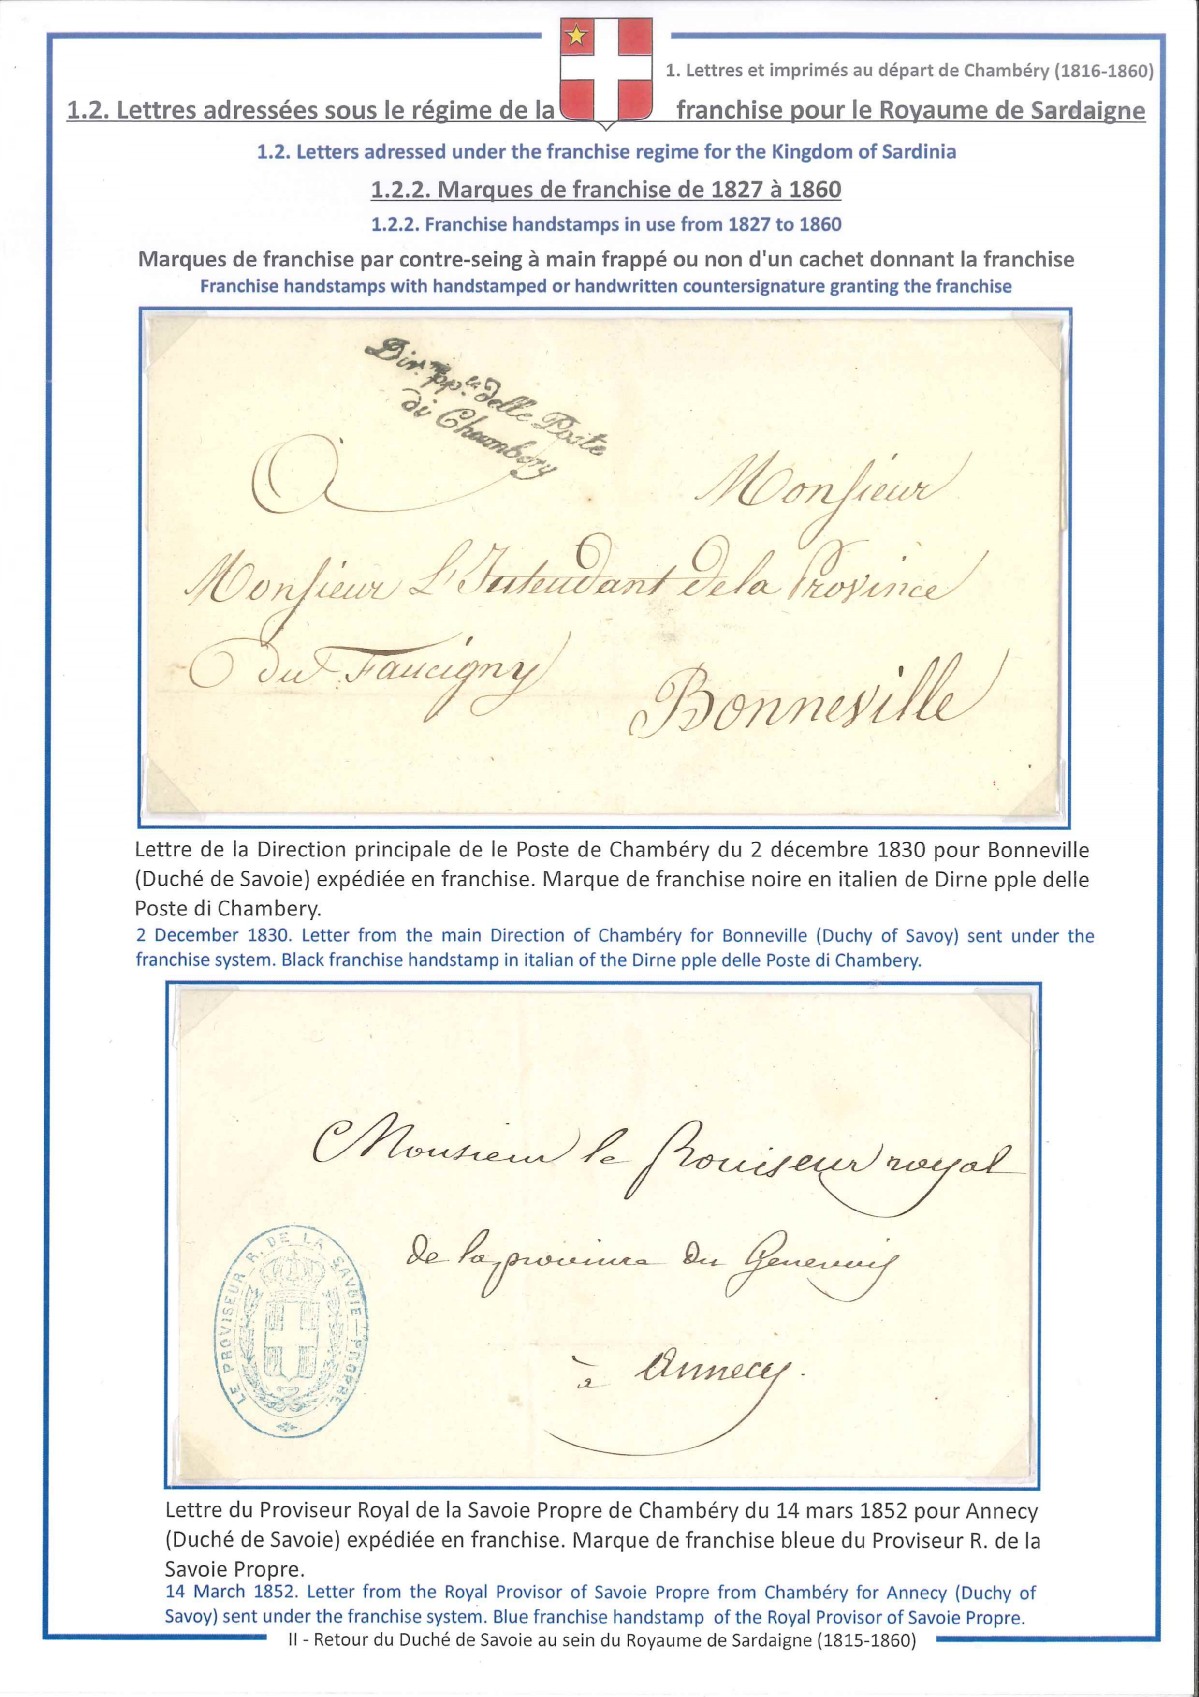 1. Lettres et imprimés au départ de Chambéry (1816-1860)
1.2. Lettres adressées sous le régime de la franchise pour le Royaume de Sardaigne
1.2. Letters adressed under the franchise regime for the Kingdom of Sardinia
1.2.2. Marques de franchise de 1827 à 1860
1.2.2. Franchise handstamps in use from 1827 to 1860
Marques de franchise par contre-seing à main frappé ou non d'un cachet donnant la franchise
Franchise handstamps with handstamped or handwritten countersignature granting the franchise
Dir.ne pp.le delle Poste
di Chambery
A Monsieur
Monsieur L'Intendant de la Province
du Faucigny
Bonneville
Lettre de la Direction principale de le Poste de Chambéry du 2 décembre 1830 pour Bonneville
(Duché de Savoie) expédiée en franchise. Marque de franchise noire en italien de Dirne pple delle
Poste di Chambery.
2 December 1830. Letter from the main Direction of Chambéry for Bonneville (Duchy of Savoy) sent under the
franchise system. Black franchise handstamp in italian of the Dirne pple delle Poste di Chambery.
Monsieur le Proviseur royal
de la province du Genevois
à Annecy.
LE PROVISEUR R. DE LA SAVOIE-PROPRE
Lettre du Proviseur Royal de la Savoie Propre de Chambéry du 14 mars 1852 pour Annecy
(Duché de Savoie) expédiée en franchise. Marque de franchise bleue du Proviseur R. de la
Savoie Propre.
14 March 1852. Letter from the Royal Provisor of Savoie Propre from Chambéry for Annecy (Duchy of
Savoy) sent under the franchise system. Blue franchise handstamp of the Royal Provisor of Savoie Propre.
II - Retour du Duché de Savoie au sein du Royaume de Sardaigne (1815-1860)